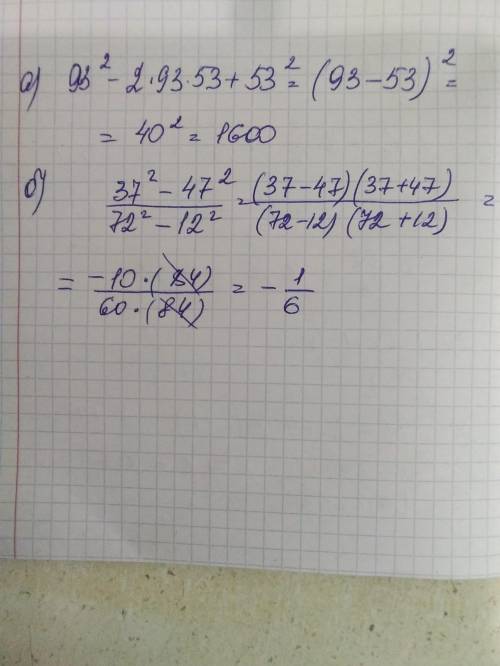 а) 93² - 2·93·53 + 53² = (93 - 53)² =
= 40² = 1600
б) 37² - 47² / 72² - 12² = (37 - 47)(37 + 47) / (72 - 12)(72 + 12) =
= -10·(84) / 60·(84) = - 1/6